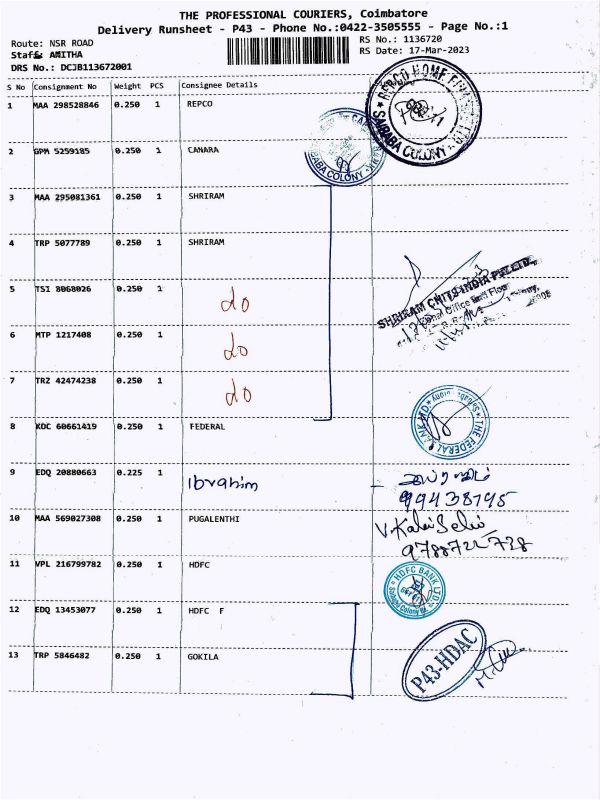 THE PROFESSIONAL COURIERS, Coimbatore
Delivery Runsheet - P43 - Phone No.:0422-3505555 - Page No.:1
Route: NSR ROAD
RS No.: 1136720
Staff: AMITHA
RS Date: 17-Mar-2023
DRS No.: DCJB113672001
S No Consignment No Weight PCS Consignee Details
1 MAA 298528846 0.250 1 REPCO
REPCO HOME
SAIBABA COLONY
2 GPM 5259185 0.250 1 CANARA
BABA COLONY
3 MAA 295081361 0.250 1 SHRIRAM
4 TRP 5077789 0.250 1 SHRIRAM
SHRIRAM CHITS INDIA PVT LTD.,
Office
5 TSI 8068026 0.250 1 do
6 MTP 1217408 0.250 1 do
7 TRZ 42474238 0.250 1 do
8 KOC 60661419 0.250 1 FEDERAL
THE FEDERAL BANK LTD
9 EDQ 20880663 0.225 1 Ibrahim
99438795
10 MAA 569027308 0.250 1 PUGALENTHI
V. Kalai Selvi
9788722728
11 VPL 216799782 0.250 1 HDFC
HDFC BANK LTD
12 EDQ 13453077 0.250 1 HDFC F
13 TRP 5846482 0.250 1 GOKILA
P43-HDAC